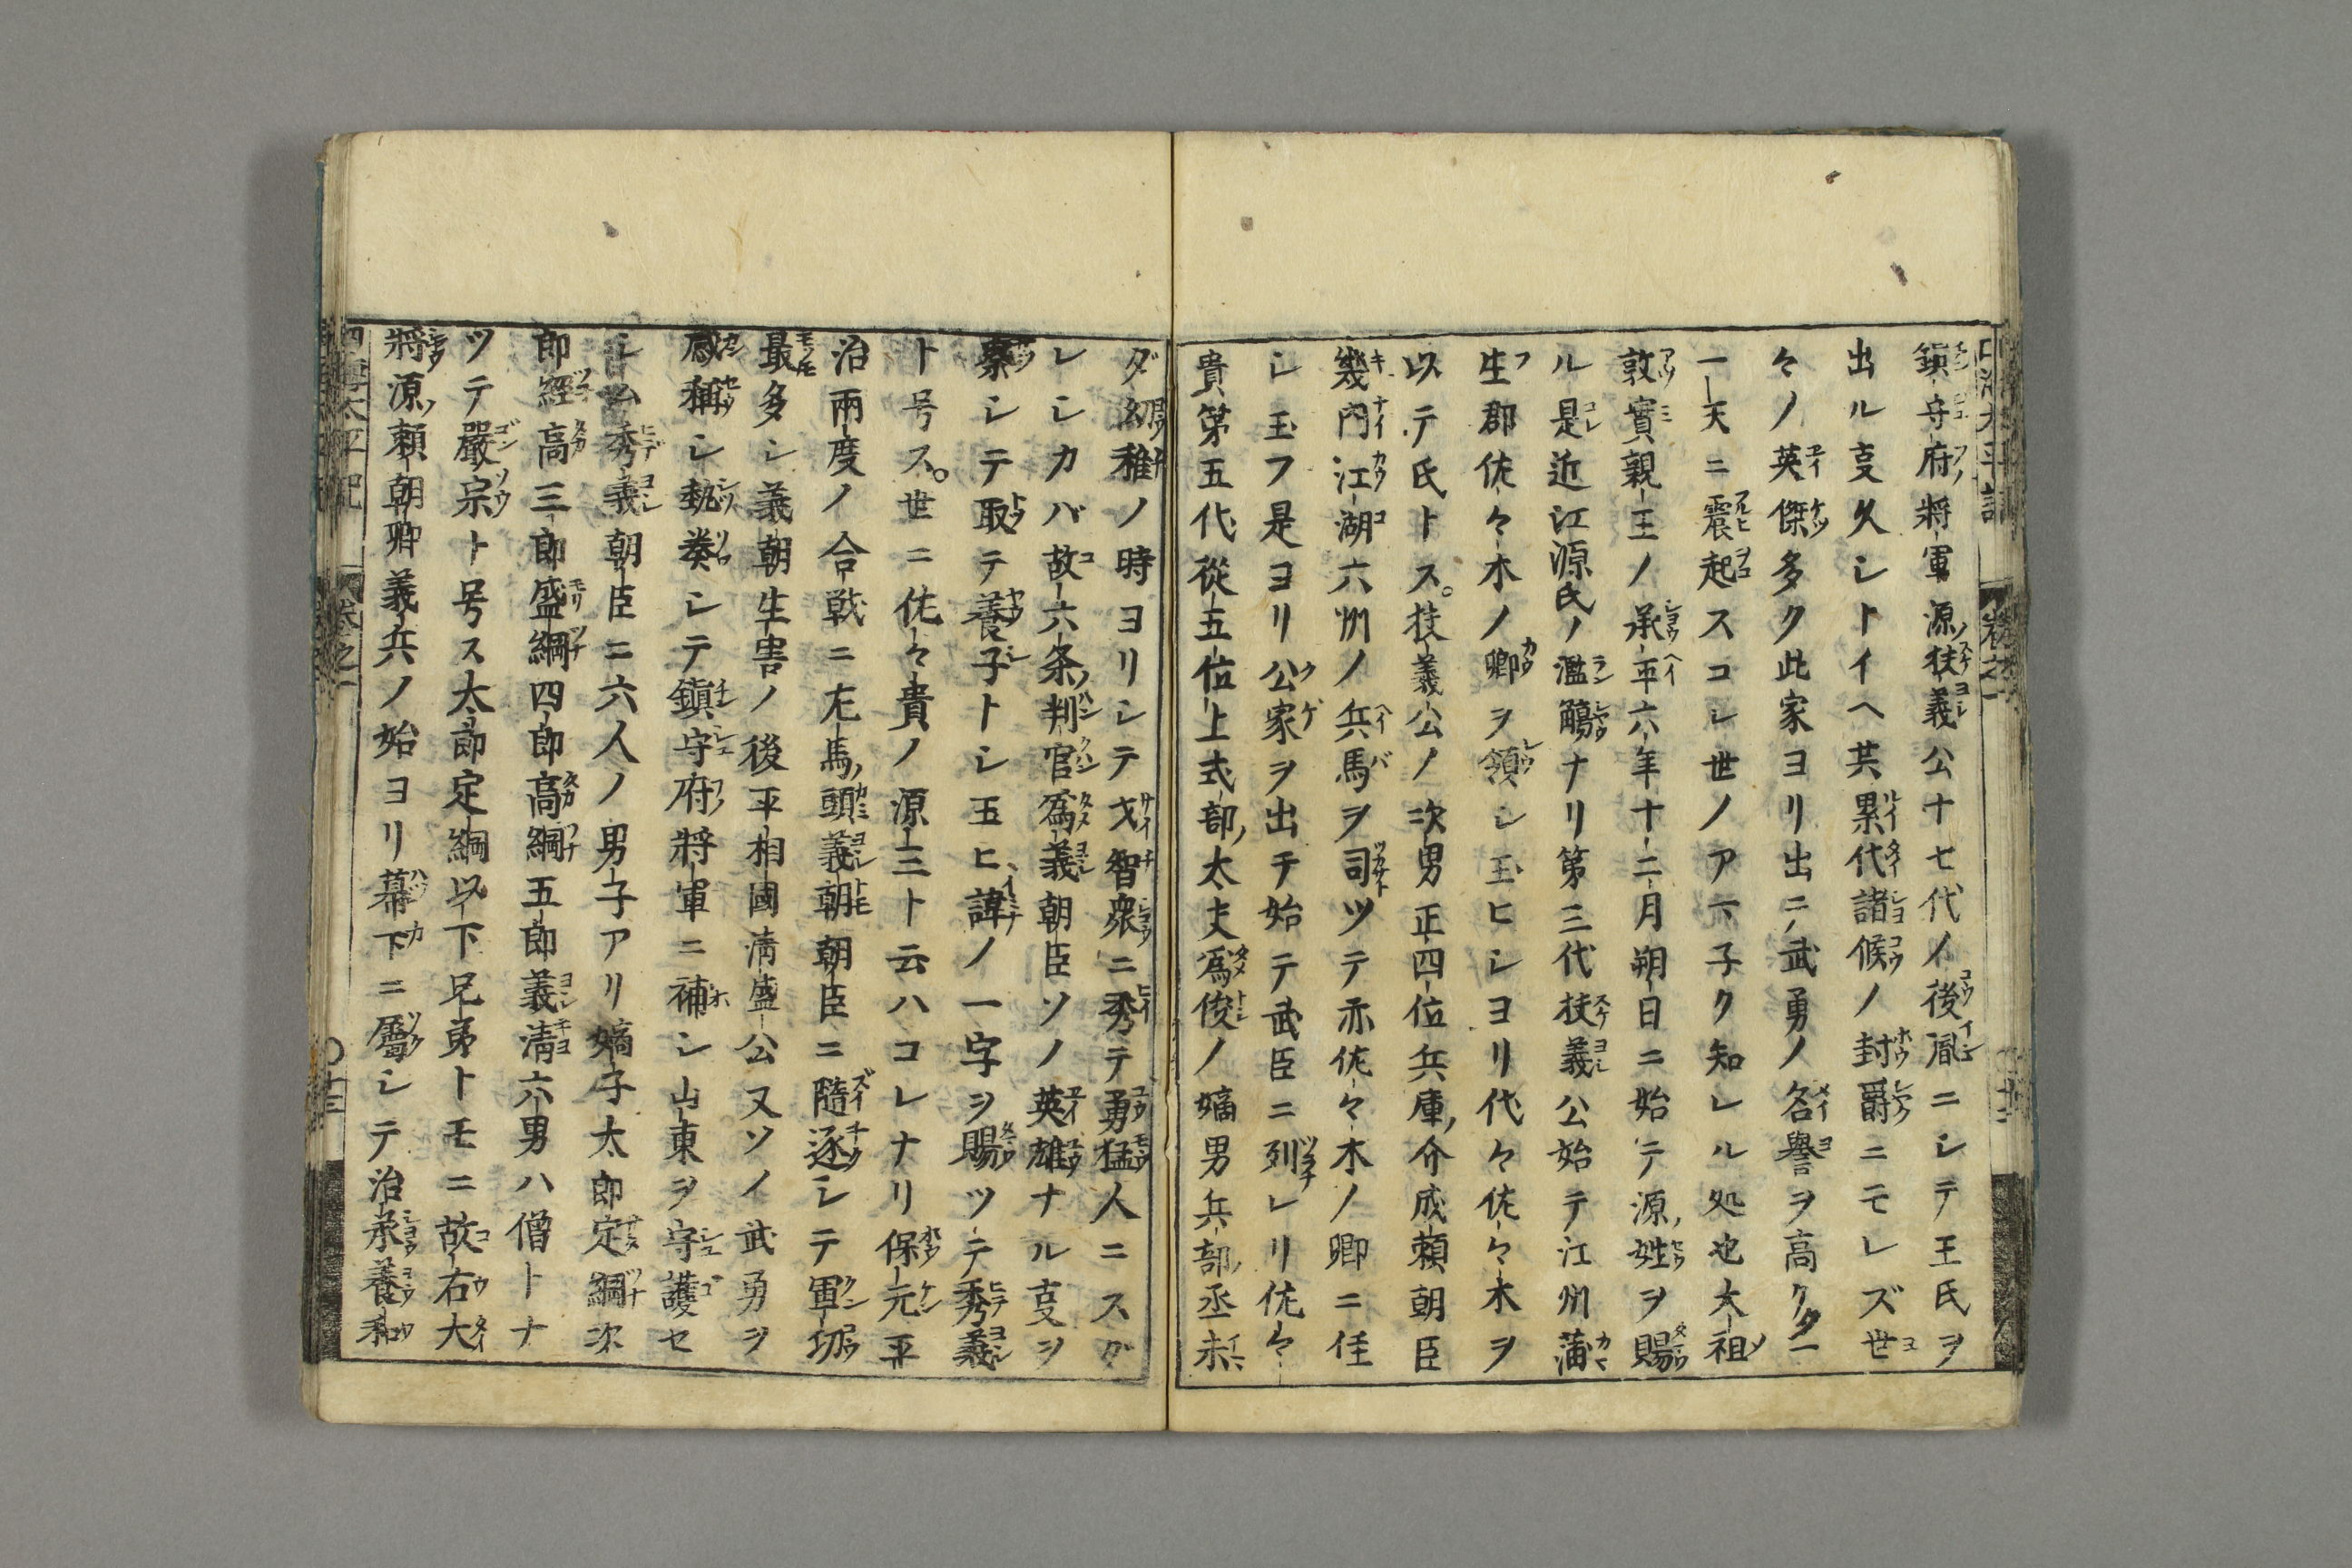 鎮守府将軍源扶義公十七代ノ後胤ニシテ王氏ヲ
出ル叓久シトイヘ共累代諸候ノ封爵ニモレズ世
々ノ英傑多ク此家ヨリ出ニ武勇ノ名誉ヲ高クタ一
一天ニ震起スコレ世ノアマ子ク知レル処也大祖
敦實親王ノ承平六年十二月朔日ニ始テ源姓ヲ賜
ル是近江源氏ノ濫觴ナリ第三代扶義公始テ江州蒲
生郡佐々木ノ郷ヲ領シ玉ヒシヨリ代々佐々木ヲ
以テ氏トス。扶義公ノ次男正四位兵庫介成頼朝臣
幾内江湖六州ノ兵馬ヲ司ツテ亦佐々木ノ郷ニ住
シ玉フ是ヨリ公家ヲ出テ始テ武臣ニ列レリ佐々
貴第五代從五位上式部太夫為俊ノ嫡男兵部丞未
ダ幼稚ノ時ヨリシテ才智衆ニ秀テ勇猛人ニスグ
レシカバ故六条判官為義朝臣ソノ英雄ナル叓ヲ
察シテ取テ養子トシ玉ヒ諱ノ一字ヲ賜ツテ秀義
ト号ス。世ニ佐々貴ノ源三ト云ハコレナリ保元平
治兩度ノ合戦ニ左馬頭義朝朝臣ニ隨逐シテ軍功
最多シ義朝生害ノ後平相國清盛公又ソノ武勇ヲ
感稱シ執奏シテ鎮守府将軍ニ補シ山東ヲ守護セ
シム秀義朝臣ニ六人ノ男子アリ嫡子太郎定綱次
郎經高三郎盛綱四郎高綱五郎義清六男ハ僧トナ
ツテ嚴宗ト号ス太郎定綱以下兄弟トモニ故右大
將源頼朝卿義兵ノ始ヨリ幕下ニ屬シテ治承養和